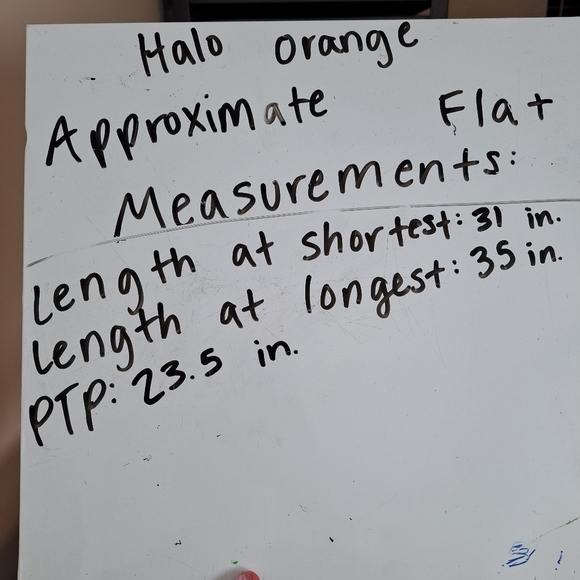 Halo orange
Approximate Flat
Measurements:
Length at shortest: 31 in.
Length at longest: 35 in.
PTP: 23.5 in.